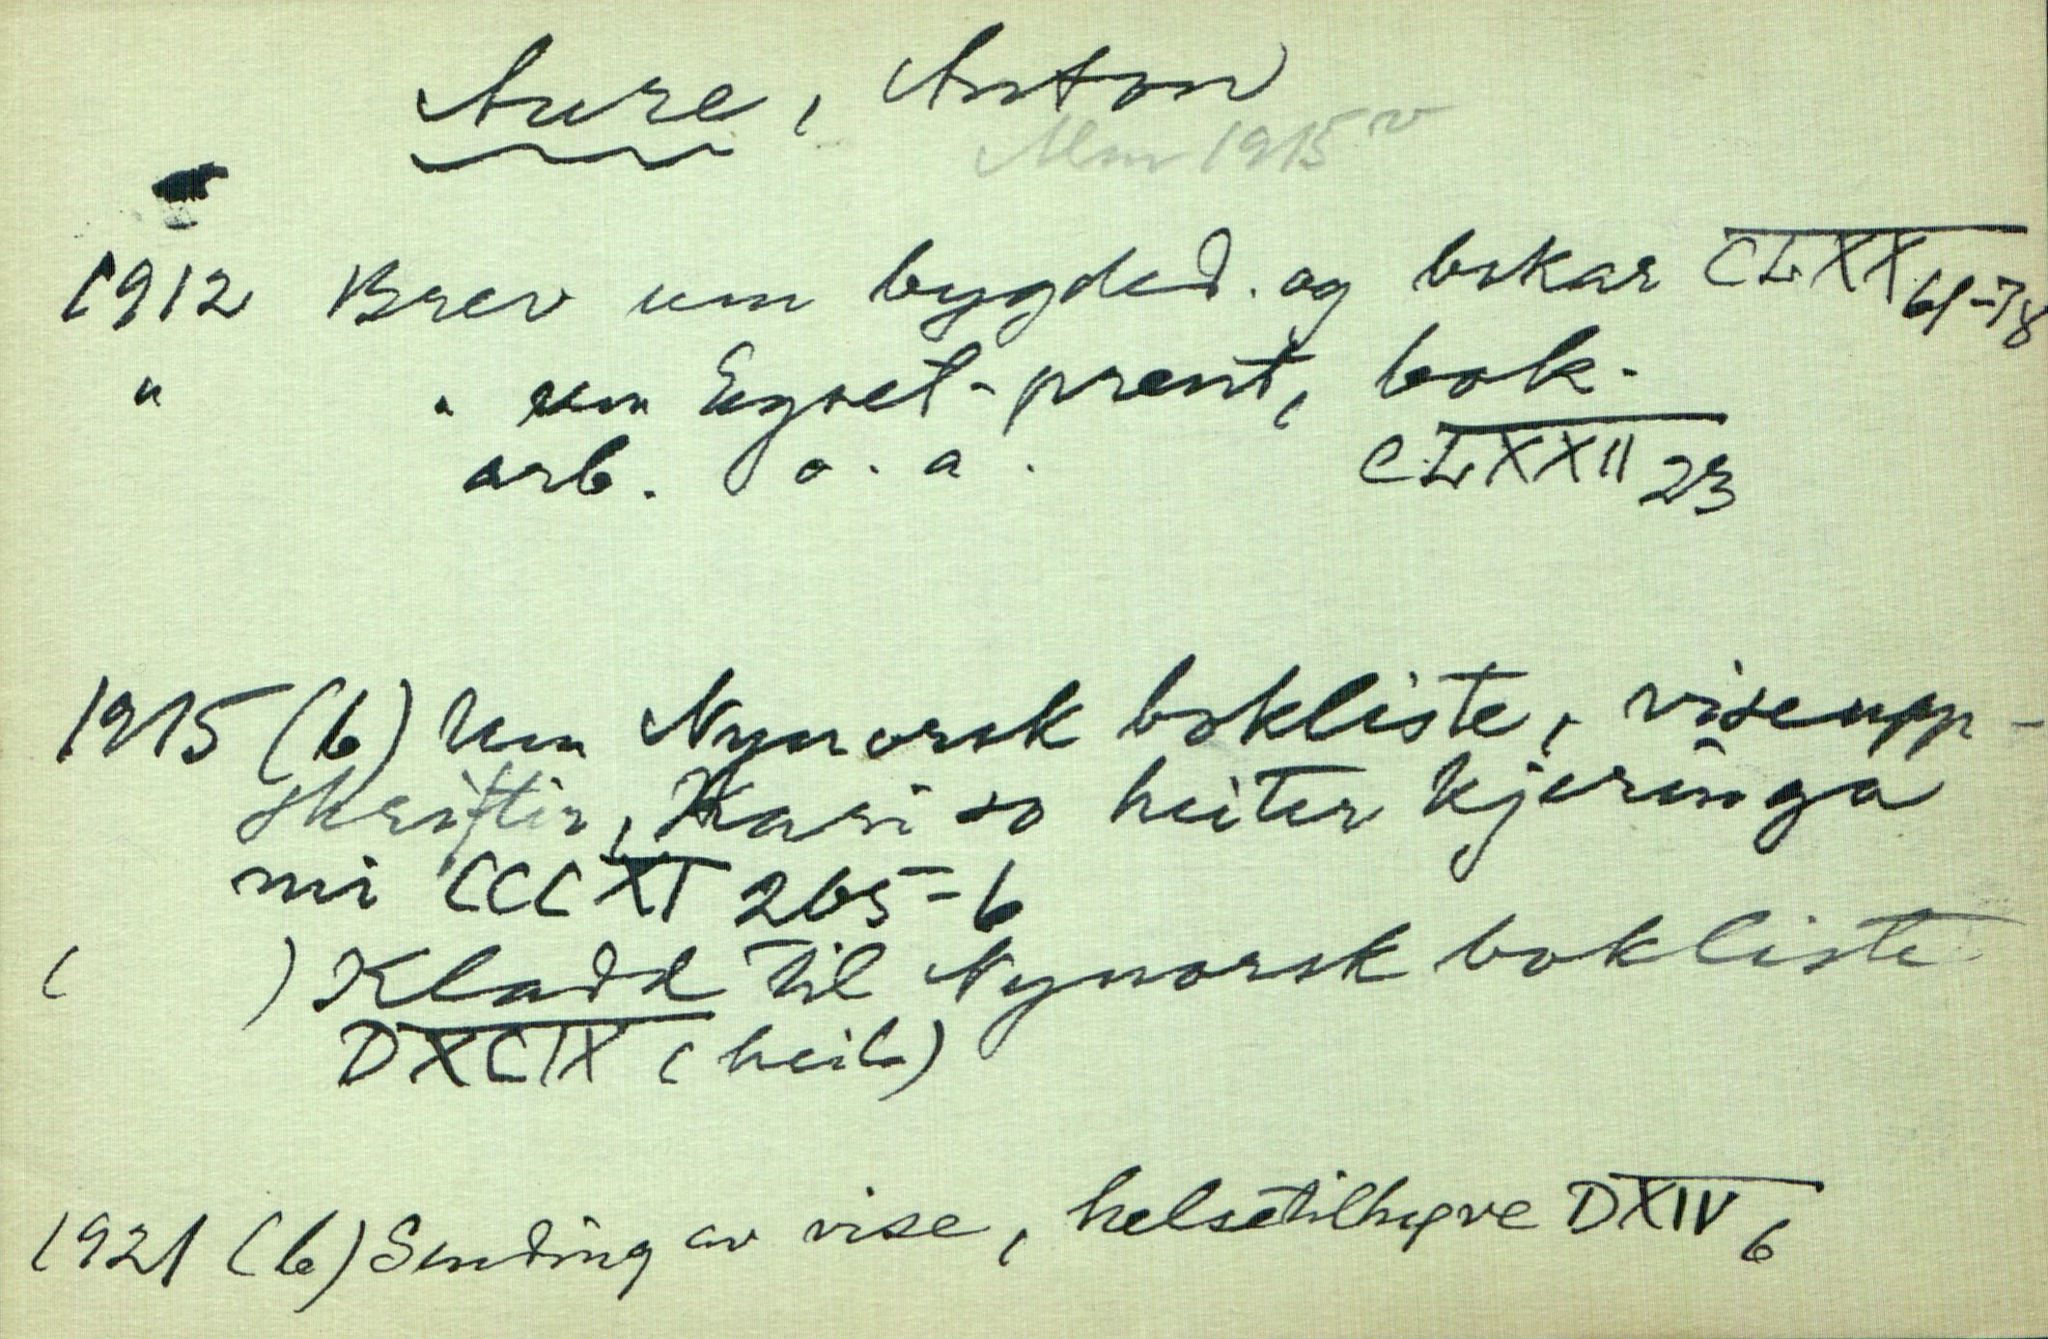 Aure, Anton
1915 v
1912 Brev um bygded. og bokar CLXX 61-78
" " um Eyvet-prent, bok.
arb. o. a. CLXXII 23
1915 (b) Um Nynorsk bokliste, viseupp-
skriftir, Kari so heiter kjeringa
mi CCCXI 265-6
( ) Kladd til Nynorsk bokliste
DXCIX (heile)
1921 (b) Sending av vise, helsetilhøve DXIV 6